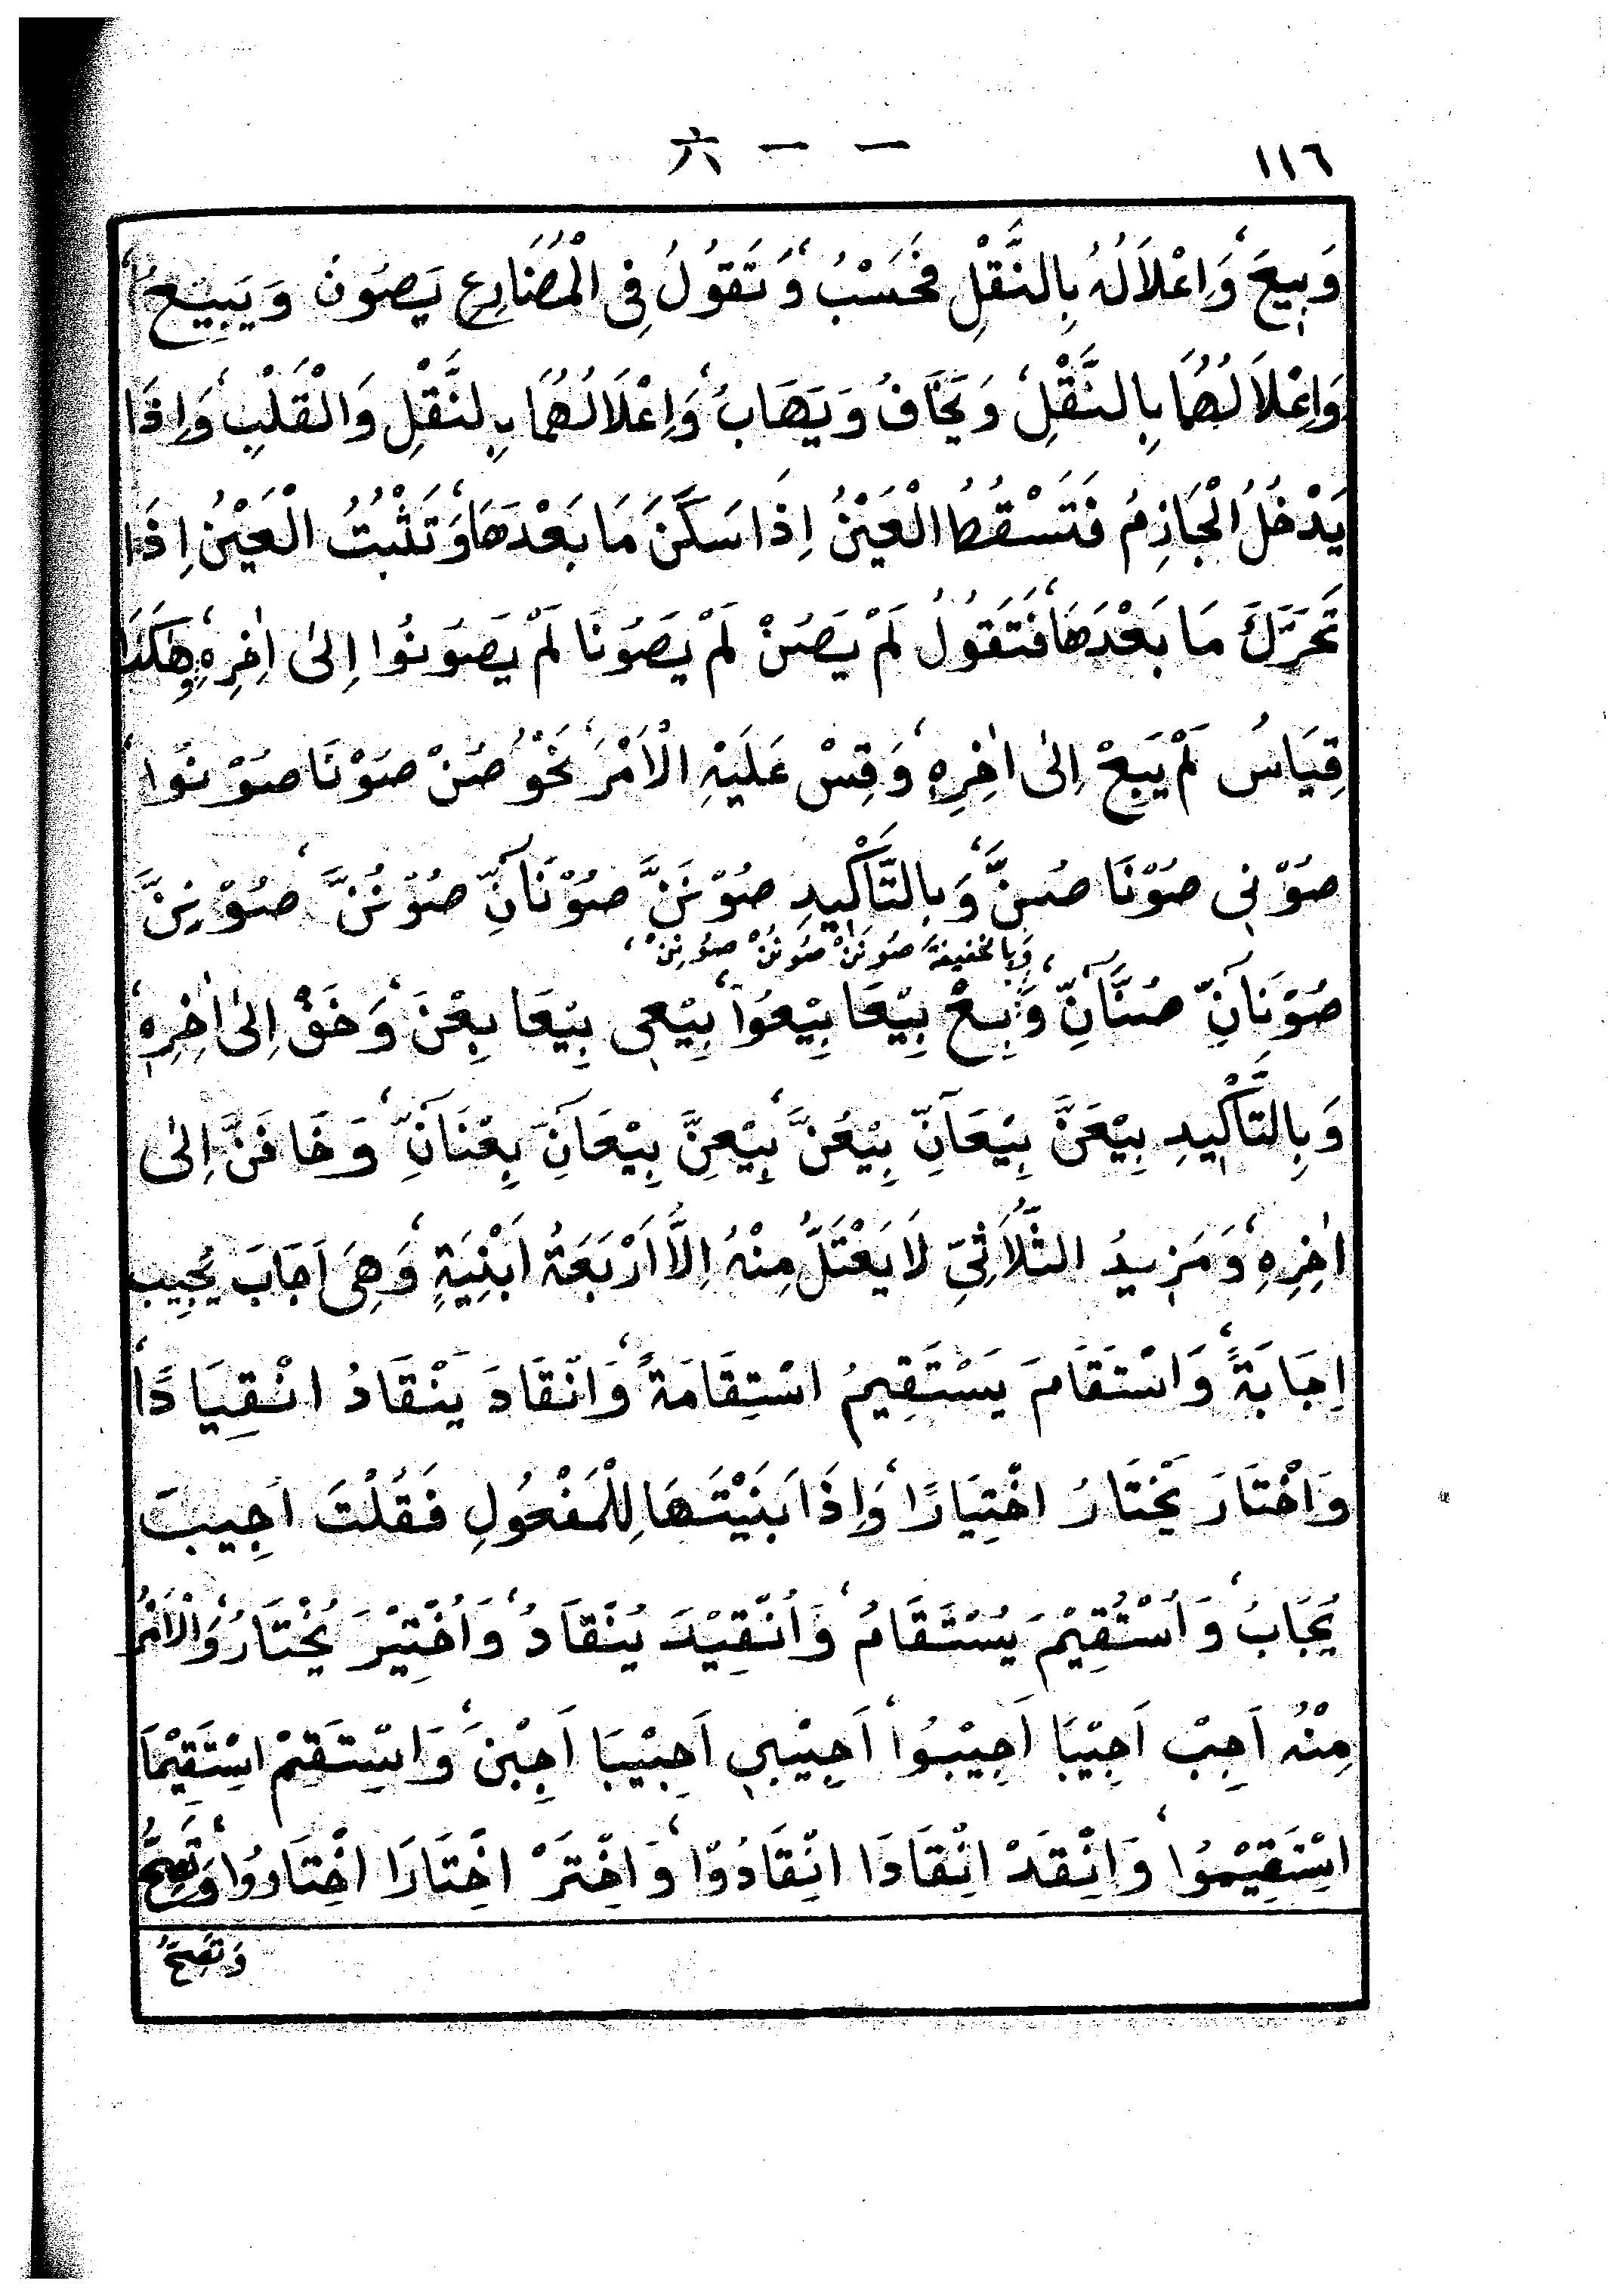 ١١٦
六 一 一
وَبِيعَ، وَاِعْلاَلُهُ بِالنَّقْلِ فَحَسْبُ، وَتَقُولُ فِى الْمُضَارِعِ يَصُونُ وَيَبِيْعُ،
وَاِعْلاَلُهُمَا بِالنَّقْلِ، وَيَخَافُ وَيَهَابُ، وَاِعْلَالُهُمَا بِلنَّقْلِ وَالْقَلْبِ، وَاِذَا
يَدْخُلُ الْجَازِمُ فَتَسْقُطُ الْعَيْنُ اِذَا سَكَنَ مَا بَعْدَهَا، وَتَثْبُتُ الْعَيْنُ اِذَا
تَحَرَّكَ مَا بَعْدَهَا، فَتَقُولُ لَمْ يَصُنْ لَمْ يَصُونَا لَمْ يَصُونُوا اِلىٰ اٰخِرِهِ، وَهٰكَذَا
قِيَاسُ لَمْ يَبِعْ اِلىٰ اٰخِرِهٖ، وَقِسْ عَلَيْهِ الْاَمْرَ، نَحْوُ صُنْ صُوْنَا صُوْنُوا،
صُوْنِى صُوْنَا صُنَّ، وَبِالتَّاْكٖيدِ صُوْنَنَّ صُوْنَانِّ صُوْنُنَّ، صُوْنِنَّ
وَبِالخفيفة صُونَنْ صُونُنْ صُونِنْ،
صُوْنَانِّ صُنَّانِّ، وَبِعْ بِيْعَا بِيْعُوا، بِيْعٖى بِيْعَا بِعْنَ، وَخَفْ اِلىٰ اٰخِرِهٖ،
وَبِالتَّاْكٖيدِ بِيْعَنَّ بِيْعَانِّ بِيْعُنَّ، بِيْعِنَّ بِيْعَانِّ بِعْنَانِّ، وَخَافَنَّ اِلىٰ
اٰخِرِهِ، وَمَزٖيدُ الثَّلَاثِىِّ لَا يَعْتَلُّ مِنْهُ اِلَّا اَرْبَعَةُ اَبْنِيَةٍ، وَهِىَ اَجَابَ يُجِيبُ
اِجَابَةً، وَاسْتَقَامَ يَسْتَقِيمُ اسْتِقَامَةً، وَانْقَادَ يَنْقَادُ انْقِيَادًا،
وَاخْتَارَ يَخْتَارُ اخْتِيَارًا، وَاِذَا بَنَيْتَهَا لِلْمَفْعُولِ فَقُلْتَ اُجِيبَ
يُجَابُ، وَاُسْتُقِيْمَ يُسْتَقَامُ، وَاُنْقِيْدَ يُنْقَادُ، وَاُخْتِيْرَ يُخْتَارُ، وَالْاَمْرُ
مِنْهُ اَجِبْ اَجِيْبَا اَجِيْبُوا، اَجِيْبٖى اَجِيْبَا اَجِبْنَ، وَاسْتَقِمْ اسْتَقِيْمَا
اسْتَقِيْمُوا، وَانْقَدْ انْقَادَا انْقَادُوا، وَاخْتَرْ اخْتَارَا اخْتَارُوا، وَتَصِحُّ
وَتَصِحُّ